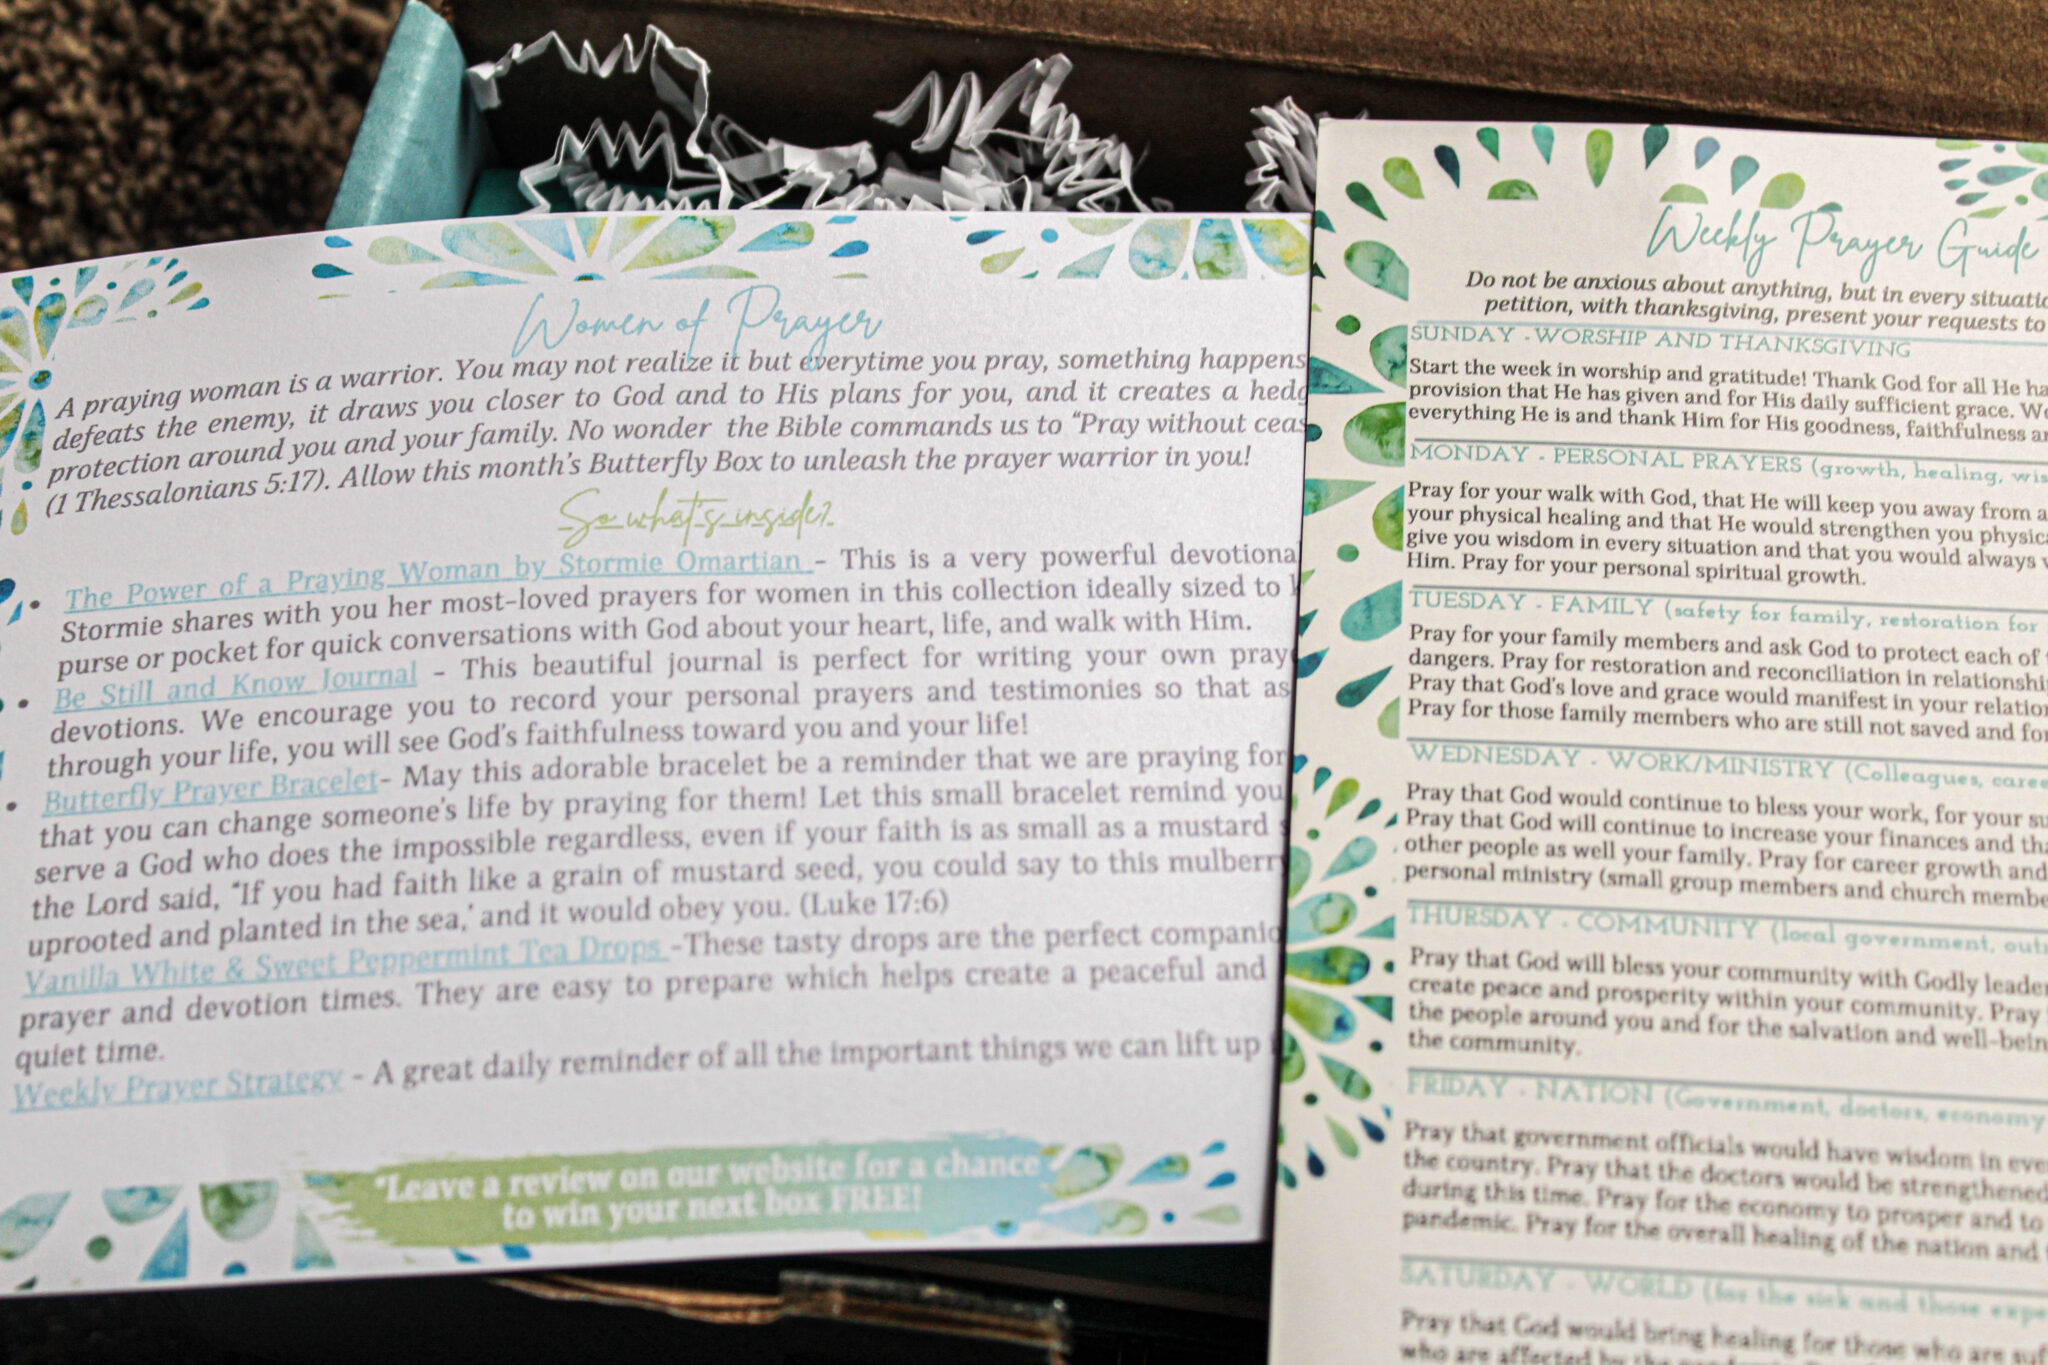 Women of Prayer
A praying woman is a warrior. You may not realize it but everytime you pray, something happens
defeats the enemy, it draws you closer to God and to His plans for you, and it creates a hedg
protection around you and your family. No wonder the Bible commands us to “Pray without ceas
(1 Thessalonians 5:17). Allow this month's Butterfly Box to unleash the prayer warrior in you!
So what's inside?
• The Power of a Praying Woman by Stormie Omartian - This is a very powerful devotiona
Stormie shares with you her most-loved prayers for women in this collection ideally sized to
purse or pocket for quick conversations with God about your heart, life, and walk with Him.
• Be Still and Know Journal - This beautiful journal is perfect for writing your own pray
devotions. We encourage you to record your personal prayers and testimonies so that as
through your life, you will see God's faithfulness toward you and your life!
• Butterfly Prayer Bracelet- May this adorable bracelet be a reminder that we are praying for
that you can change someone's life by praying for them! Let this small bracelet remind you
serve a God who does the impossible regardless, even if your faith is as small as a mustard
the Lord said, “If you had faith like a grain of mustard seed, you could say to this mulberry
uprooted and planted in the sea,' and it would obey you. (Luke 17:6)
Vanilla White & Sweet Peppermint Tea Drops -These tasty drops are the perfect companio
prayer and devotion times. They are easy to prepare which helps create a peaceful and
quiet time.
Weekly Prayer Strategy - A great daily reminder of all the important things we can lift up
*Leave a review on our website for a chance
to win your next box FREE!
Weekly Prayer Guide
Do not be anxious about anything, but in every situatio
petition, with thanksgiving, present your requests to
SUNDAY - WORSHIP AND THANKSGIVING
Start the week in worship and gratitude! Thank God for all He ha
provision that He has given and for His daily sufficient grace. Wo
everything He is and thank Him for His goodness, faithfulness a
MONDAY - PERSONAL PRAYERS (growth, healing, wis
Pray for your walk with God, that He will keep you away from a
your physical healing and that He would strengthen you physica
give you wisdom in every situation and that you would always
Him. Pray for your personal spiritual growth.
TUESDAY - FAMILY (safety for family, restoration for
Pray for your family members and ask God to protect each of
dangers. Pray for restoration and reconciliation in relationshi
Pray that God's love and grace would manifest in your relation
Pray for those family members who are still not saved and for
WEDNESDAY - WORK/MINISTRY (Colleagues, caree
Pray that God would continue to bless your work, for your su
Pray that God will continue to increase your finances and tha
other people as well your family. Pray for career growth and
personal ministry (small group members and church membe
THURSDAY - COMMUNITY (local government, out
Pray that God will bless your community with Godly leade
create peace and prosperity within your community. Pray
the people around you and for the salvation and well-bein
the community.
FRIDAY - NATION (Government, doctors, economy
Pray that government officials would have wisdom in eve
the country. Pray that the doctors would be strengthened
during this time. Pray for the economy to prosper and to
pandemic. Pray for the overall healing of the nation and
SATURDAY - WORLD (for the sick and those expe
Pray that God would bring healing for those who are suf
who are affected by the